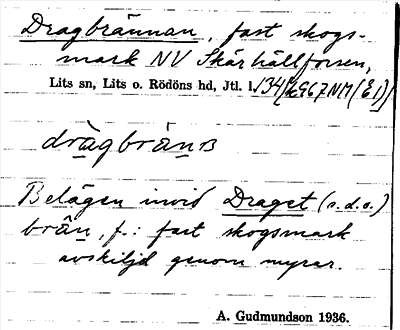 Dragbrännan, fast skogs-
mark NV Skärhällforsen,
Lits sn, Lits o. Rödöns hd, Jtl. l.
dràgbrän
Belägen invid Draget (s.d.o.)
brän, f.: fast skogsmark
avskiljd genom myrar.
A. Gudmundson 1936.